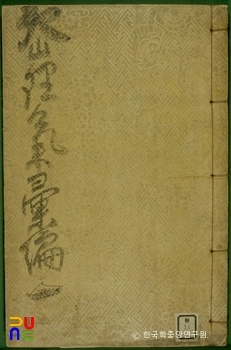 山理氣彙編 一
© 한국학중앙연구원